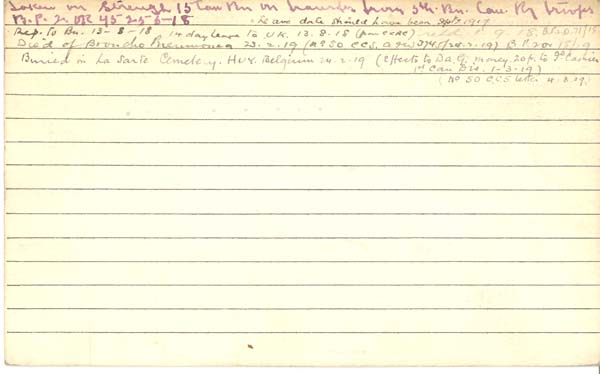 Taken on Strength 15 Can Bn on transfer from 5th Bn. Can. Ry Troops
B.P. 2. DR 45 25-5-18 Leave date should have been Sept 1917
Rep. to Bn. 13-8-18 14 day leave to U.K. 13.9.18
Died of Broncho Pneumonia 23.2.19 (No 50 CCS. 24.2.19)
Buried in La Sarte Cemetery. Huy. Belgium 24.2.19 (Effects to D.A.G. money 20f. to
1st Can Div. 1-3-19)
(No 50 CCS 4.3.19)